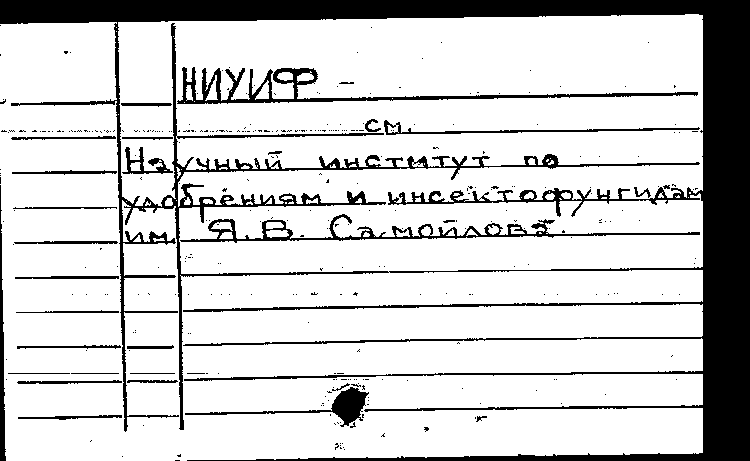 НИУИФ –
см.
Научный институт по
удобрениям и инсектофунгидам
им. Я.В. Самойлова.